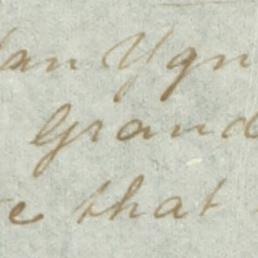 an Ygn
Grand
e that